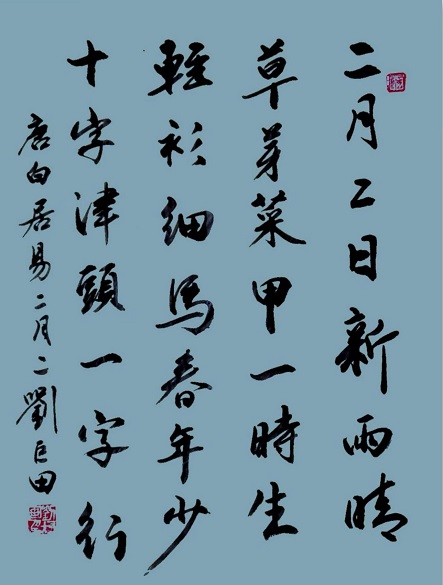 二月二日新雨晴
草芽菜甲一時生
輕衫細馬春年少
十字津頭一字行
唐白居易二月二劉巨田